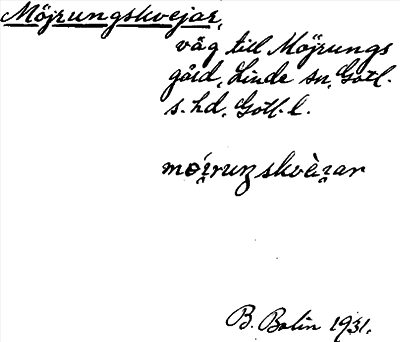 Möjrungskvejar,
väg till Möjrungs
gård, Linde sn, Gotl.
s. hd, Gotl. l.
mo᷄i̯ruŋskvèi̯ar
B. Bolin 1931.